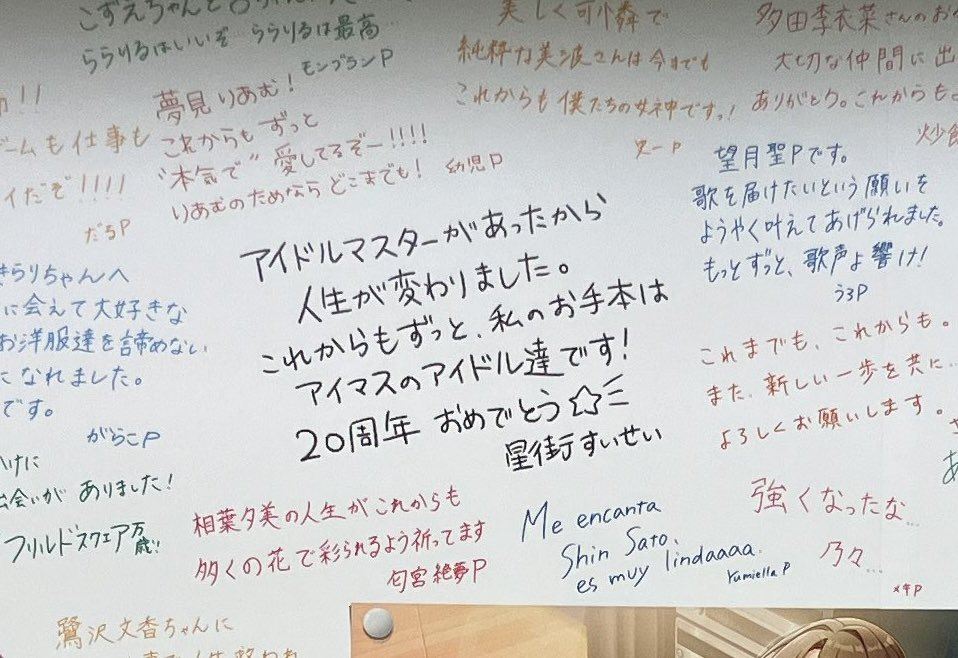 こずえちゃんと
ららりるはいいぞ ららりるは最高
モンブランP
美しく可憐で
純粋な美波さんは今までも
これからも僕たちの女神です!
多田李衣菜さんのお
大切な仲間に出
ありがとう。これからも。
!!
ゲームも仕事も
イだぞ!!!!
だちP
夢見りあむ!
これからもずっと
“本気で”愛してるぞー!!!!
りあむのためなら どこまでも! 幼児P
望月聖Pです。
歌を届けたいという願いを
ようやく叶えてあげられました。
もっとずっと、歌声よ響け!
うろP
アイドルマスターがあったから
人生が変わりました。
これからもずっと、私のお手本は
アイマスのアイドル達です!
20周年 おめでとう☆
星街すいせい
きらりちゃんへ
に会えて大好きな
お洋服達を諦めない
になれました。
です。
がらこP
これまでも、これからも。
また、新しい一歩を共に…
よろしくお願いします。
けに
出会いが ありました!
フリルドスクエア万歳!!
相葉夕美の人生がこれからも
多くの花で彩られるよう祈ってます
匂宮絶夢P
Me encanta
Shin Sato,
es muy lindaaaa.
Yumiella P
強くなったな…
乃々…
鷺沢文香ちゃんに